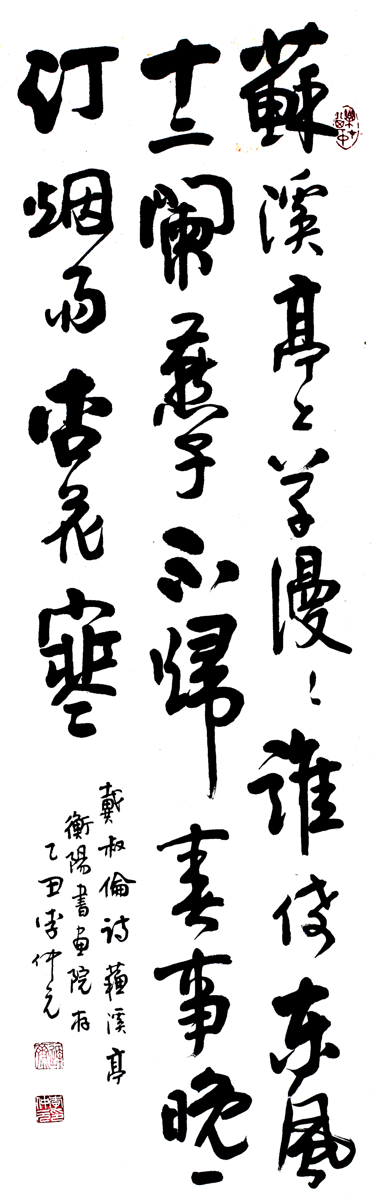 蘇溪亭上草漫〻誰倚东風
十二闌燕子不歸春事晚一
汀烟雨杏花寒
戴叔倫詩蘓溪亭
衡陽書画院存
乙丑李仲元